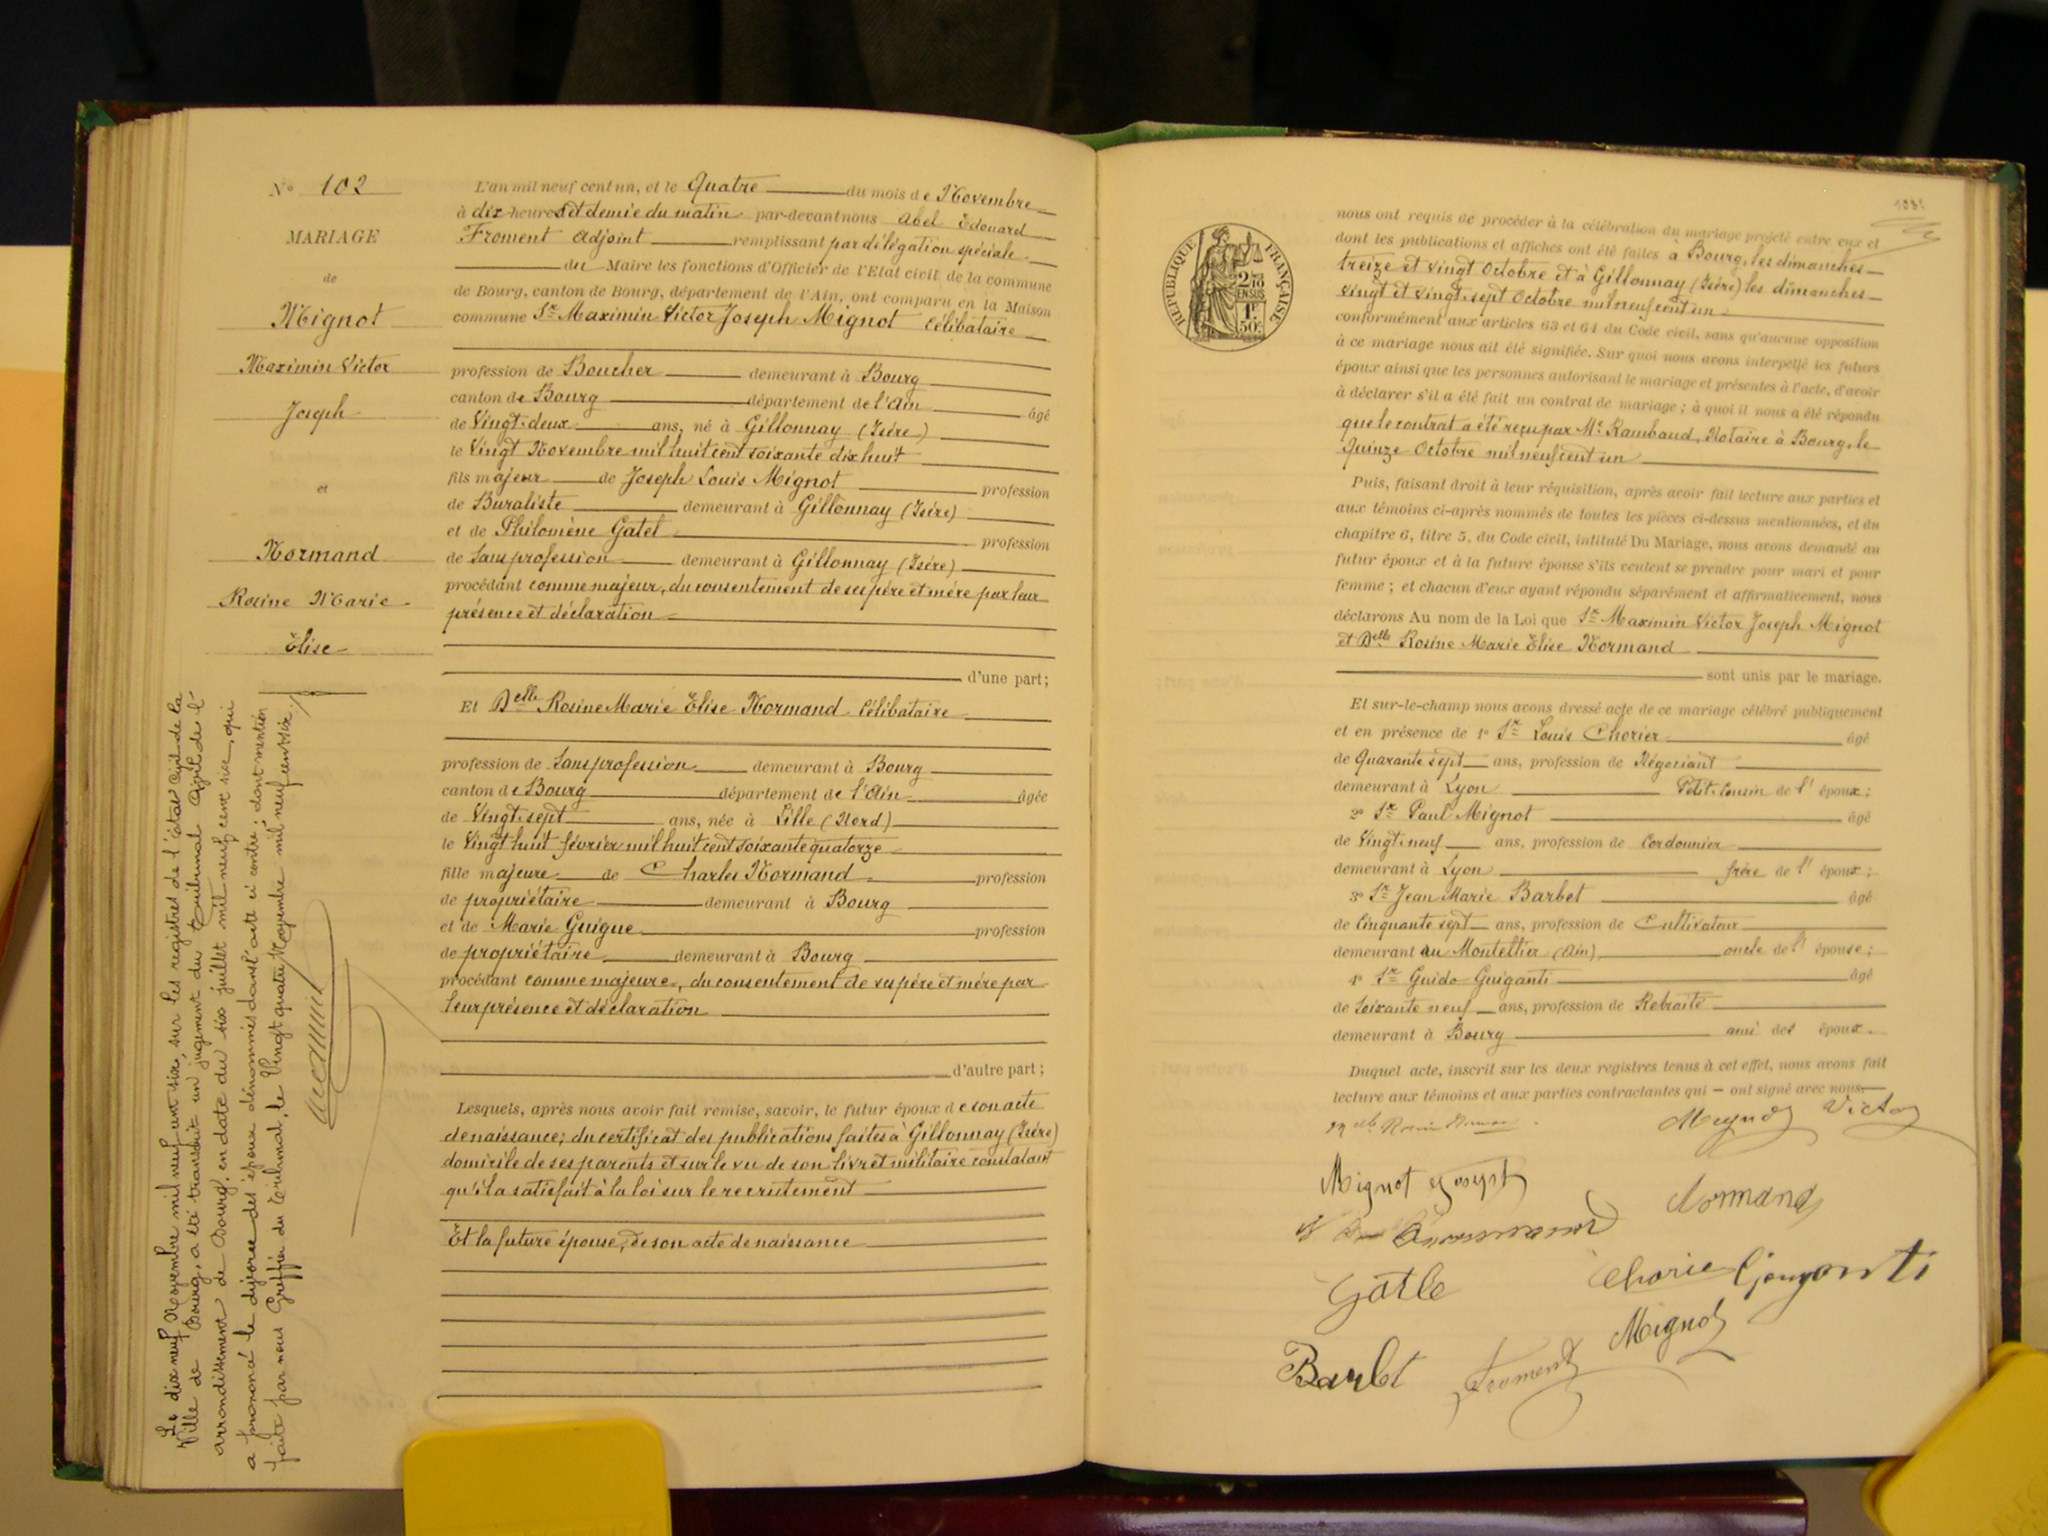 N° 102
MARIAGE
de
Mignot
Maximin Victor
Joseph
et
Normand
Rosine Marie
Élise
Le dix neuf Novembre mil neuf cent six, sur les registres de l'état civil de la
Ville de Bourg, a été transcrit un jugement du Tribunal Civil de l'
arrondissement de Bourg, en date du six juillet mil neuf cent six, qui
a prononcé le divorce des époux dénommés dans l'acte ci contre; dont mention
faite par nous Greffier du Tribunal, le Vingt quatre Novembre mil neuf cent six.
L'an mil neuf cent un, et le Quatre du mois de Novembre
à dix heures et demie du matin par-devant nous Abel Edouard
Froment Adjoint remplissant par délégation spéciale
du Maire les fonctions d'Officier de l'Etat civil de la commune
de Bourg, canton de Bourg, département de l'Ain, ont comparu en la Maison
commune Sr Maximin Victor Joseph Mignot Célibataire
profession de Boucher demeurant à Bourg
canton de Bourg département de l'Ain âgé
de Vingt-deux ans, né à Gillonnay (Isère)
le Vingt Novembre mil huit cent soixante dix huit
fils majeur de Joseph Louis Mignot profession
de Buraliste demeurant à Gillonnay (Isère)
et de Philomène Gatel profession
de Sans profession demeurant à Gillonnay (Isère)
procédant comme majeur, du consentement de ses père et mère par leur
présence et déclaration
d'une part;
Et Delle Rosine Marie Elise Normand Célibataire
profession de Sans profession demeurant à Bourg
canton de Bourg département de l'Ain âgée
de Vingt-sept ans, née à Lille (Nord)
le Vingt huit février mil huit cent soixante quatorze
fille majeure de Charles Normand profession
de propriétaire demeurant à Bourg
et de Marie Guigue profession
de propriétaire demeurant à Bourg
procédant comme majeure, du consentement de ses père et mère par
leur présence et déclaration
d'autre part;
Lesquels, après nous avoir fait remise, savoir, le futur époux de son acte
de naissance; du certificat des publications faites à Gillonnay (Isère)
domicile de ses parents et sur le vu de son livret militaire constatant
qu'il a satisfait à la loi sur le recrutement
Et la future épouse, de son acte de naissance
RÉPUBLIQUE FRANÇAISE
2/10
EN SUS
1F.
50c.
nous ont requis de procéder à la célébration du mariage projeté entre eux et
dont les publications et affiches ont été faites à Bourg, les dimanches
treize et vingt Octobre et à Gillonnay (Isère) les dimanches
vingt et vingt-sept Octobre mil neuf cent un
conformément aux articles 63 et 64 du Code civil, sans qu'aucune opposition
à ce mariage nous ait été signifiée. Sur quoi nous avons interpellé les futurs
époux ainsi que les personnes autorisant le mariage et présentes à l'acte, d'avoir
à déclarer s'il a été fait un contrat de mariage; à quoi il nous a été répondu
que le contrat a été reçu par Me Rambaud, Notaire à Bourg, le
Quinze Octobre mil neuf cent un
Puis, faisant droit à leur réquisition, après avoir fait lecture aux parties et
aux témoins ci-après nommés de toutes les pièces ci-dessus mentionnées, et du
chapitre 6, titre 5, du Code civil, intitulé Du Mariage, nous avons demandé au
futur époux et à la future épouse s'ils veulent se prendre pour mari et pour
femme; et chacun d'eux ayant répondu séparément et affirmativement, nous
déclarons Au nom de la Loi que Sr Maximin Victor Joseph Mignot
et Delle Rosine Marie Elise Normand
sont unis par le mariage.
Et sur-le-champ nous avons dressé acte de ce mariage célébré publiquement
et en présence de 1° Sr Louis Chorier âgé
de Quarante sept ans, profession de Négociant
demeurant à Lyon Petit-Cousin de l'époux;
2° Sr Paul Mignot âgé
de Vingt-neuf ans, profession de Cordonnier
demeurant à Lyon frère de l'époux;
3° Sr Jean Marie Barbet âgé
de Cinquante sept ans, profession de Cultivateur
demeurant au Montellier (Ain) oncle de l'épouse;
4° Sr Guido Guiganti âgé
de Soixante neuf ans, profession de Retraité
demeurant à Bourg ami des époux.
Duquel acte, inscrit sur les deux registres tenus à cet effet, nous avons fait
lecture aux témoins et aux parties contractantes qui ont signé avec nous
Mignot Victor
Mignot Joseph
Normand
Chorier
Barbet
Froment
Mignot